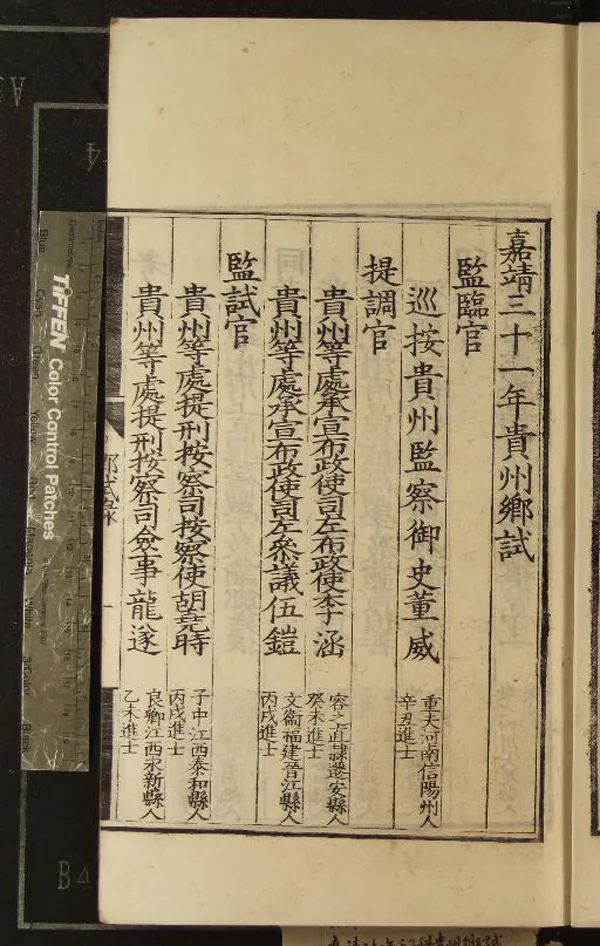 嘉靖三十一年貴州鄉試
監臨官
巡按貴州監察御史董威
重夫河南信陽州人
辛丑進士
提調官
貴州等處承宣布政使司左布政使李涵
容之直隸遷安縣人
癸未進士
貴州等處承宣布政使司左叅議伍鎧
文衞福建晉江縣人
丙戌進士
監試官
貴州等處提刑按察司按察使胡堯時
子中江西泰和縣人
丙戌進士
貴州等處提刑按察司僉事龍遂
良卿江西永新縣人
乙未進士
鄉試錄
一
TIFFEN Color Control Patches
Blue
Cyan
Green
Yellow
Red
Magenta
White
3/Color
Black
B4